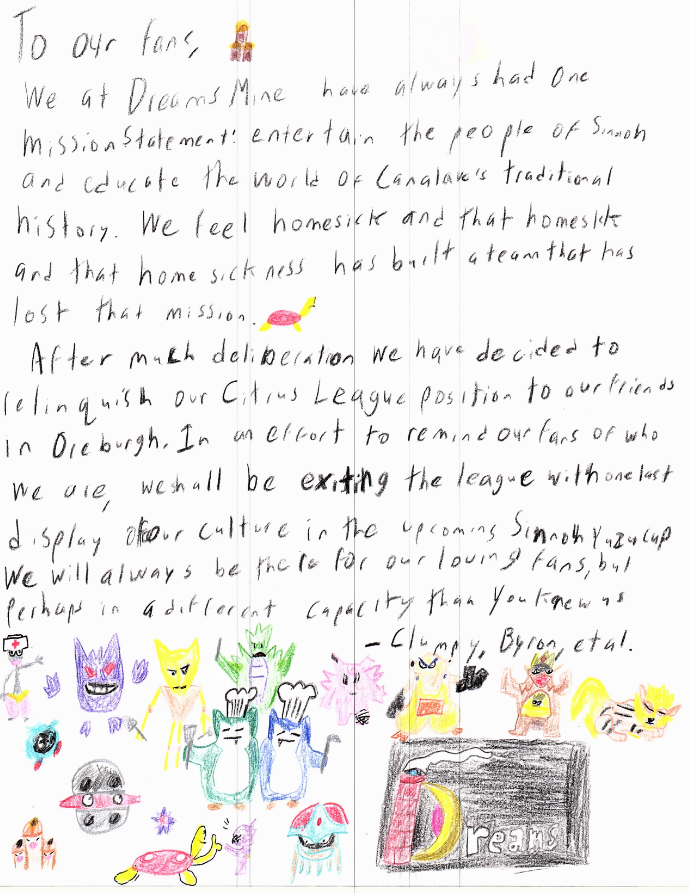 To our fans,
We at Dreams Mine have always had one
mission statement: entertain the people of Sinnoh
and educate the world of Canalave's traditional
history. We feel homesick and that homesick
and that home sickness has built a team that has
lost that mission.
After much deliberation we have decided to
relinquish our Citrus League position to our friends
in Oreburgh. In an effort to remind our fans of who
we are, we shall be exiting the league with one last
display of our culture in the upcoming Sinnoh Yuzu Cup
We will always be there for our loving fans, but
perhaps in a different capacity than you knew us
- Clumpy, Byron, et al.
Dreams